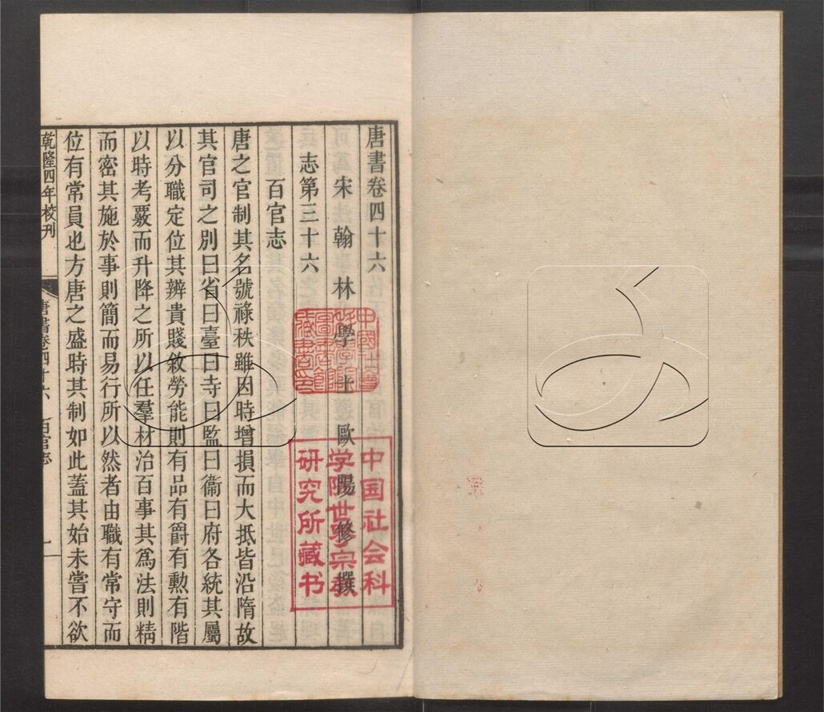 唐書卷四十六
宋翰林學士歐陽修撰
志第三十六
百官志
唐之官制其名號祿秩雖因時增損而大抵皆沿隋故
其官司之別曰省曰臺曰寺曰監曰衞曰府各統其屬
以分職定位其辨貴賤敘勞能則有品有爵有勲有階
以時考覈而升降之所以任羣材治百事其爲法則精
而密其施於事則簡而易行所以然者由職有常守而
位有常員也方唐之盛時其制如此蓋其始未嘗不欲
乾隆四年校刊
唐書卷四十六 百官志 一
中国社会科
学院世界宗教
研究所藏书